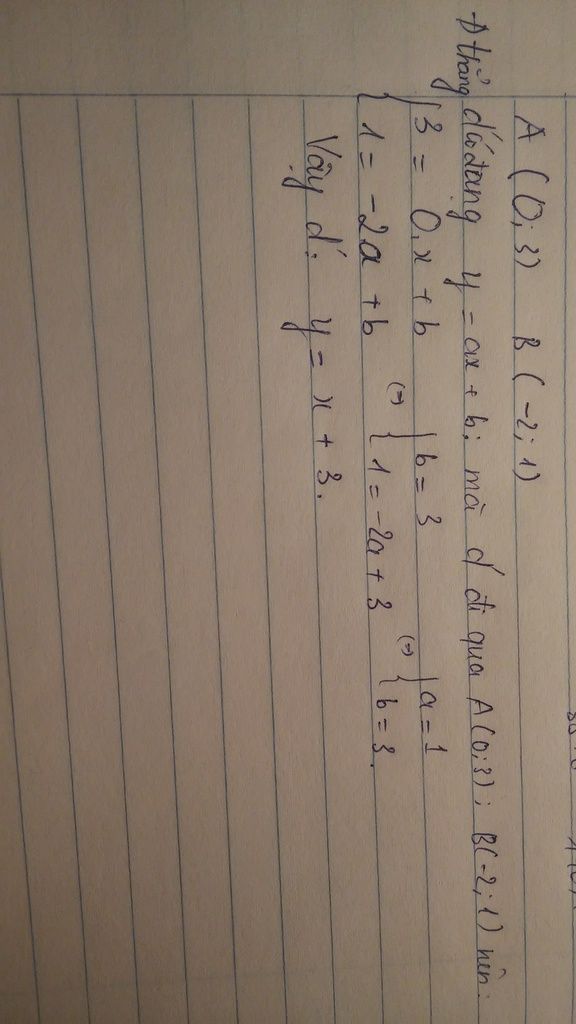 A (0; 3) B (-2; 1)
Đ thẳng d có dạng y = ax + b; mà d đi qua A(0;3); B(-2;1) nên:
{ 3 = 0.x + b (=) { b = 3 (=) { a = 1
{ 1 = -2a + b { 1 = -2a + 3 { b = 3.
Vậy d: y = x + 3.